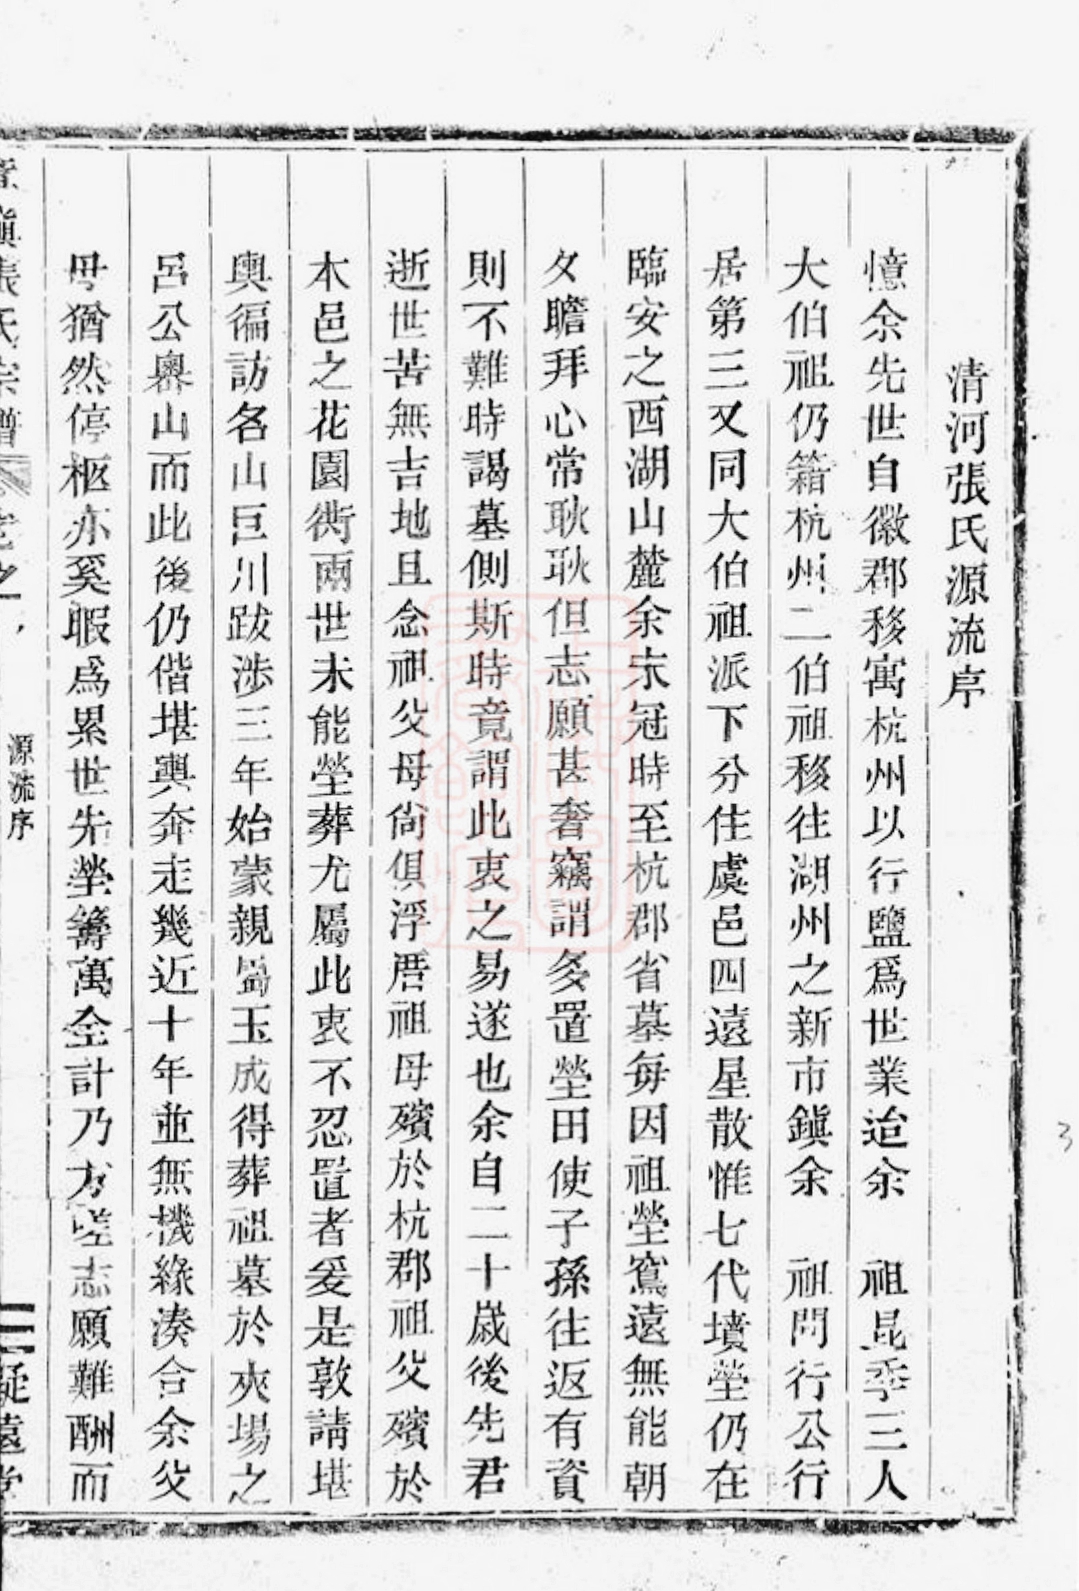 清河張氏源流序
憶余先世自徽郡移寓杭州以行鹽爲世業迨余　祖昆季三人
大伯祖仍籍杭州二伯祖移往湖州之新市鎭余　祖問行公行
居第三又同大伯祖派下分住虞邑四遠星散惟七代墳塋仍在
臨安之西湖山麓余末冠時至杭郡省墓每因祖塋窵遠無能朝
夕瞻拜心常耿耿但志願甚奢竊謂多置塋田使子孫往返有資
則不難時謁墓側斯時竟謂此衷之易遂也余自二十歲後先君
逝世苦無吉地且念祖父母尙俱浮厝祖母殯於杭郡祖父殯於
本邑之花園衖兩世未能塋葬尤屬此衷不忍置者爰是敦請堪
輿徧訪各山巨川跋涉三年始蒙親翁玉成得葬祖墓於夾場之
呂公嶴山而此後仍偕堪輿奔走幾近十年並無機緣湊合余父
母猶然停柩亦奚暇爲累世先塋籌萬全計乃方嗟志願難酬而
張氏宗譜
源流序
凝遠堂